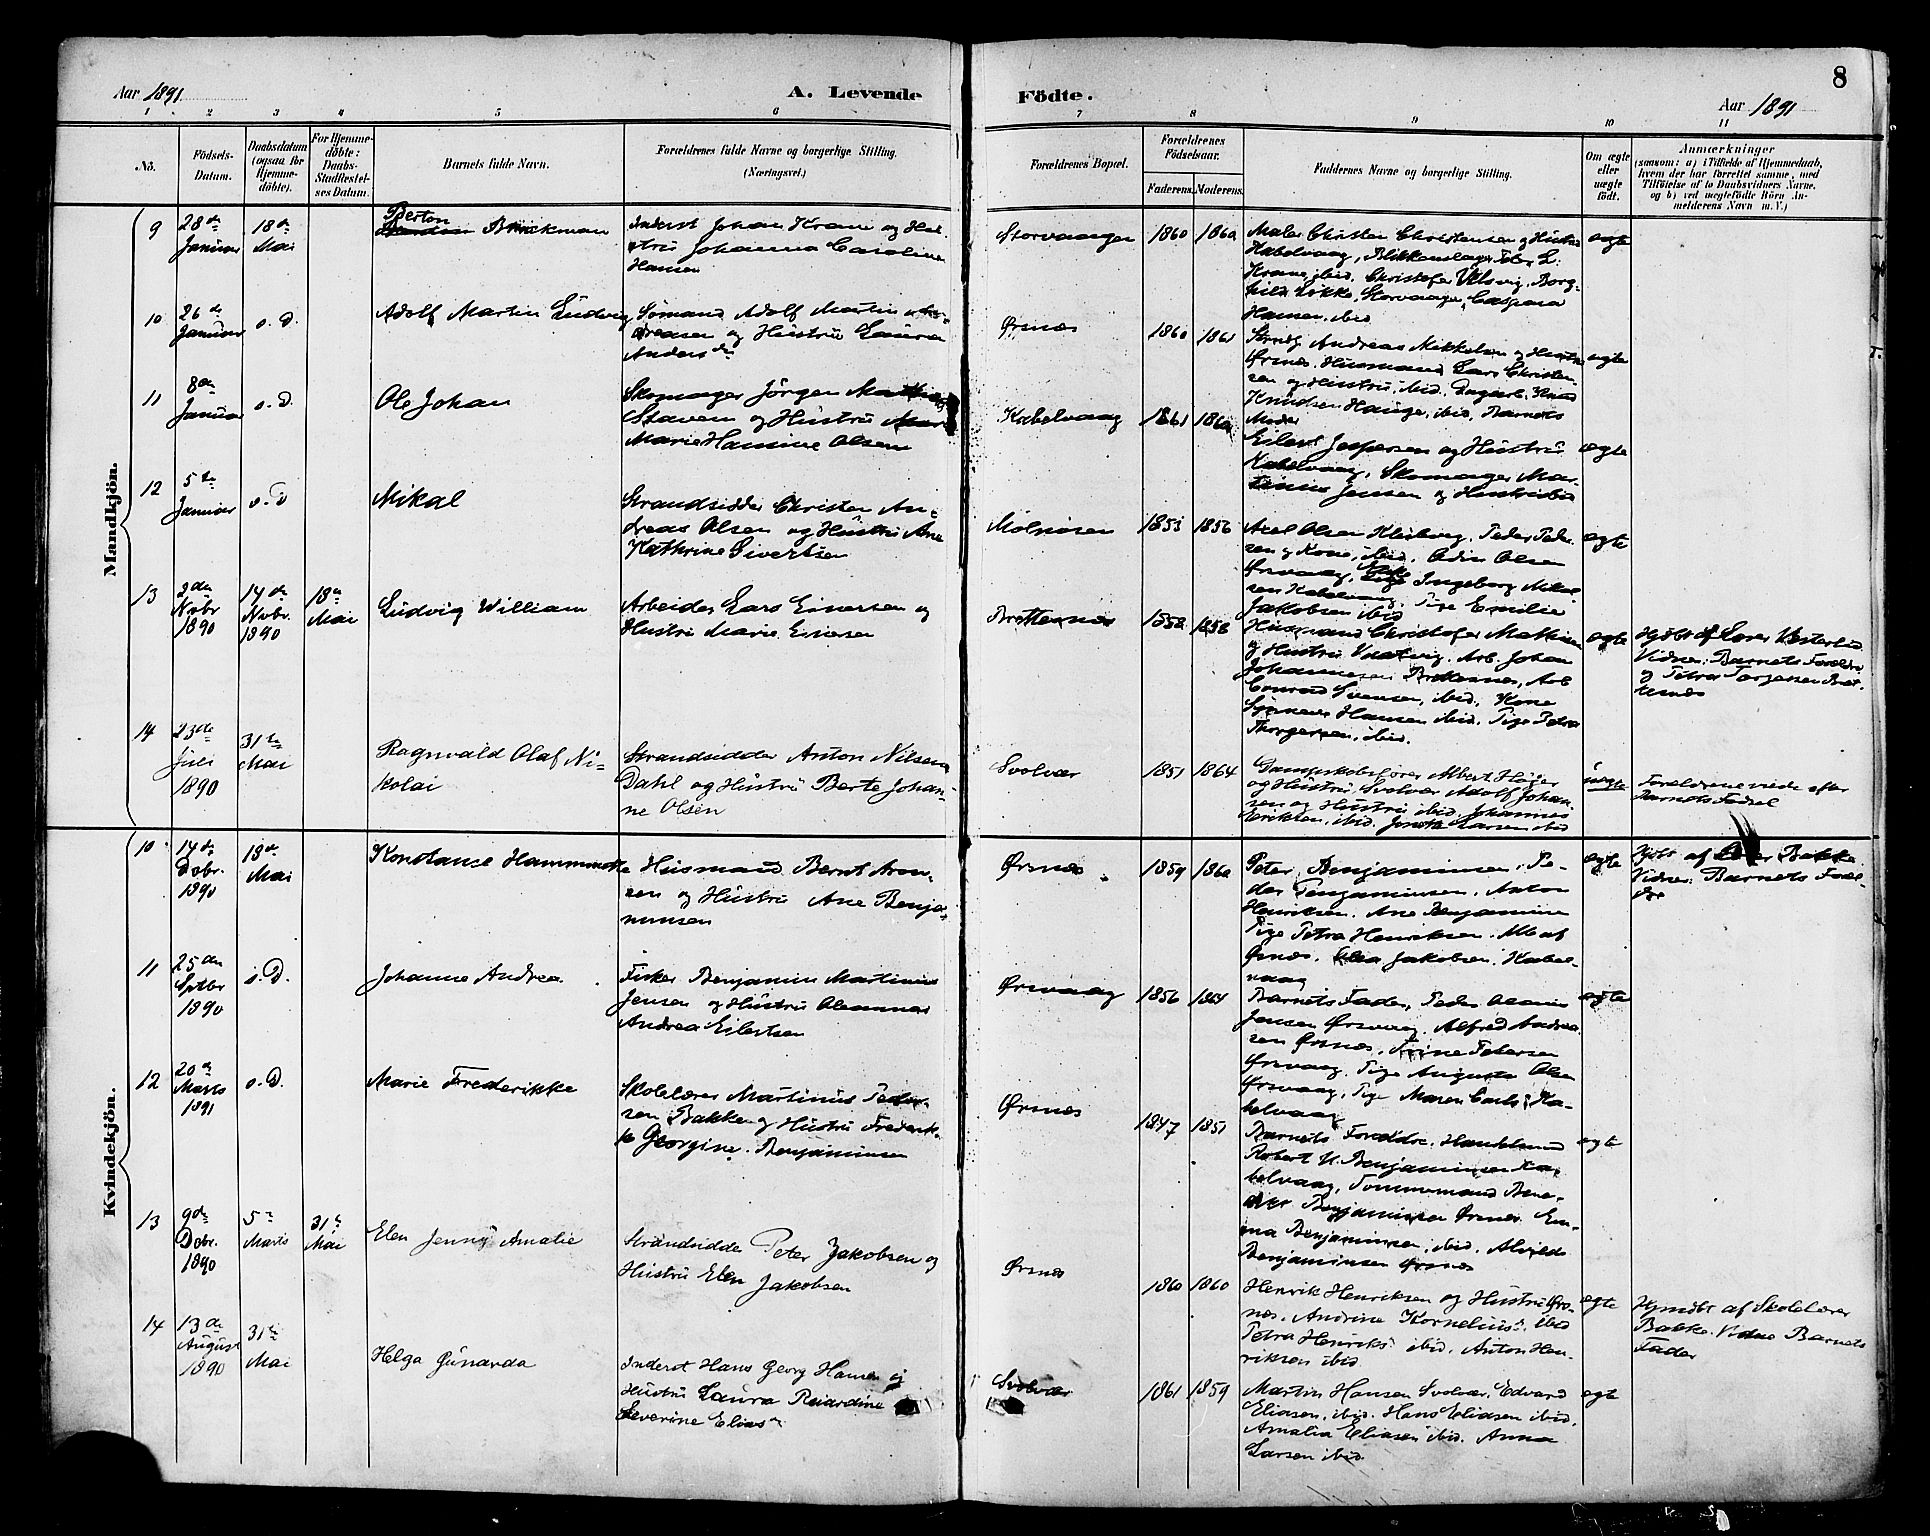 Aar 1891
A. Levende
Födte.
8
Aar 1891
1 2 3 4 5 6 7 8 9 10 11
No.
Födsels-Datum.
Daabsdatum (ogsaa for Hjemme-döbte).
For Hjemme-döbte: Daabs-Stadfæstel-ses Datum.
Barnets fulde Navn.
Forældrenes fulde Navne og borgerlige Stilling. (Næringsvei.)
Forældrenes Bopæl.
Forældrenes Födselsaar.
Faderens. Moderens.
Faddernes Navne og borgerlige Stilling.
Om ægte eller uægte födt.
Anmærkninger
(saasom: a) i Tilfælde af Hjemmedaab, hvem der har forrettet samme, med Tilföielse af to Daabsvidners Navne, og b) ved uægtefödte Börn An-melderens Navn m. V.)
Mandkjön.
9
28de Januar
18de Mai
Berton Brinckman
Inderst Johan Krane og Hu-
stru Johanna Caroline
Hansen
Storvaagen
1860 1860
Maler Christen Christensen og Hustru
Kabelvaag, Blikkenslager Peder L.
Krane, ibid, Christofer Ulsvig, Borg-
hild Lökke, Storvaagen, Caspara
Hansen, ibid
ægte
10
26de Januar
o. D.
Adolf Martin Ludvig
Sömand Adolf Martin An-
dreasen og Hustru Laura
Andersdr
Ørsnes
1860 1861
Andreas Mikkelsen og Hustru
Ørsnes. Husmand Lars Christen-
sen og Hustru, ibid, Dagarb. Knud
Knudsen Hauge, ibid, Barnets
Moder
ægte
11
8de Januar
o. D.
Ole Johan
Skomager Jörgen
Staven og Hustru
Marie Hansine Olsen
Kabelvaag
1861 1860
Eilert Jespersen og Hustru
Kabelvaag, Skomager Mar-
tinus Jensen og Hustru ibid
ægte
12
5te Januar
o. D
Mikal
Strandsidder Christen An-
dreas Olsen og Hustru Ane
Kathrine Sivertsen
Molnösen
1853 1856
Axel Olsen Kleivvig, Peder Peder-
sen og Kone, ibid, Odin Olsen
Ørsvaag, Ingeborg Mikal-
sen Kabelvaag, Pige Emilie
Jakobsen ibid
ægte
13
3de Novbr 1890
14de Novbr. 1890
18de Mai
Ludvig William
Arbeider Lars Eiversen og
Hustru Marie Eivesen
Brettesnes
1858 1858
Husmand Christofer Mathisen
og Hustru, Arb. Johan
Johannesen Brettesnes, Arb
Conrad Svensen, ibid, Kone
Hansen ibid, Pige Petra
Thorgersen, ibid.
ægte
Hjdöbt af Lærer Vesterlid
Vidner: Barnets Forældre
og Petra Torgersen Bret-
tesnes
14
23de Juli 1890
31te Mai
Ragnvald Olaf Ni-
kolai
Strandsidder Anton Nilsen
Dahl og Hustru Berte Johan-
ne Olsen
Svolvær
1851 1864
Dampskibsförer Albert Höjer
og Hustru Svolvær Adolf Johan-
sen og Hustru ibid. Johannes
Eriksen, ibid. Larsen ibid
uægte
Forældrene viede efter
Barnets Födsel
Kvindekjön.
10
14de Dcbr. 1890
18de Mai
Konstanse Hammine
Husmand Bernt Aron-
sen og Hustru Ane Benja-
minsen
Ørsnes
1859 1860
Peter Benjaminsen, Pe-
der Benjaminsen, Anton
Henriksen, Ane Benjaminsen
Pige Petra Henriksen, Alle af
Ørsnes. Jakobsen, Kabel-
vaag
ægte
Hjdöbt af Lærer Bakke
Vidner: Barnets Foræl-
dre
11
25de Sptbr 1890
o. D.
Johanne Andrea
Fisker Benjamin Martinus
Jensen og Hustru Oleanna
Andrea Eilertsen
Ørsvaag
1856 1864
Barnets Fader, Peder
Jensen Ørsvaag, Alfred Andrea-
sen Ørsnes, Trine Petersen
Ørsvaag, Pige Auguste Olsen
Ørsvaag, Pige Maren Carls. Ka-
belvaag
ægte
12
20de Marts 1891
o. D.
Marie Frederikke
Skolelærer Martinus Peder-
sen Bakke og Hustru Frederik-
ke Georgine Benjaminsen
Ørsnes
1847 1851
Barnets Forældre, Handelsmand
Robert N. Benjaminsen Ka-
belvaag, Tømmermand Bene-
dikt Benjaminsen Ørsnes. Em-
ma Benjaminsen, ibid, Alvilde
Benjaminsen Ørsnes
ægte
13
9de Dcbr. 1890
5te Marts
31te Mai
Elen Jenny Amalie
Strandsidde Peter Jakobsen og
Hustru Elen Jakobsen
Ørsnes
1860 1860
Henrik Henriksen og Hustru Ørs-
nes, Andrine Kornelius. ibid
Petra Henriks. ibid. Anton Hen-
riksen ibid
ægte
Hjmdöbt af Skolelærer
Bakke. Vidne Barnets
Fader
14
13de August 1890
31te Mai
Helga Gunarda
Inderst Hans Georg Hansen og
Hustru Laura Rikardine
Severine Eliasdr
Svolvær
1861 1859
Martin Hansen Svolvær, Edvard
Eliasen, ibid. Hans Eliasen ibid,
Amalia Eliasen ibid. Anna
Larsen ibid.
ægte